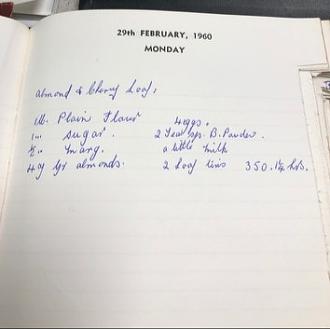 29th FEBRUARY, 1960
MONDAY
almond & Cherry Loaf.
1lb. Plain Flour 4 eggs.
1 " Sugar. 2 Teasps. B. Powder.
½ " Marg. a little milk
4oz gr almonds. 2 Loaf tins 350. 1¼ hrs.